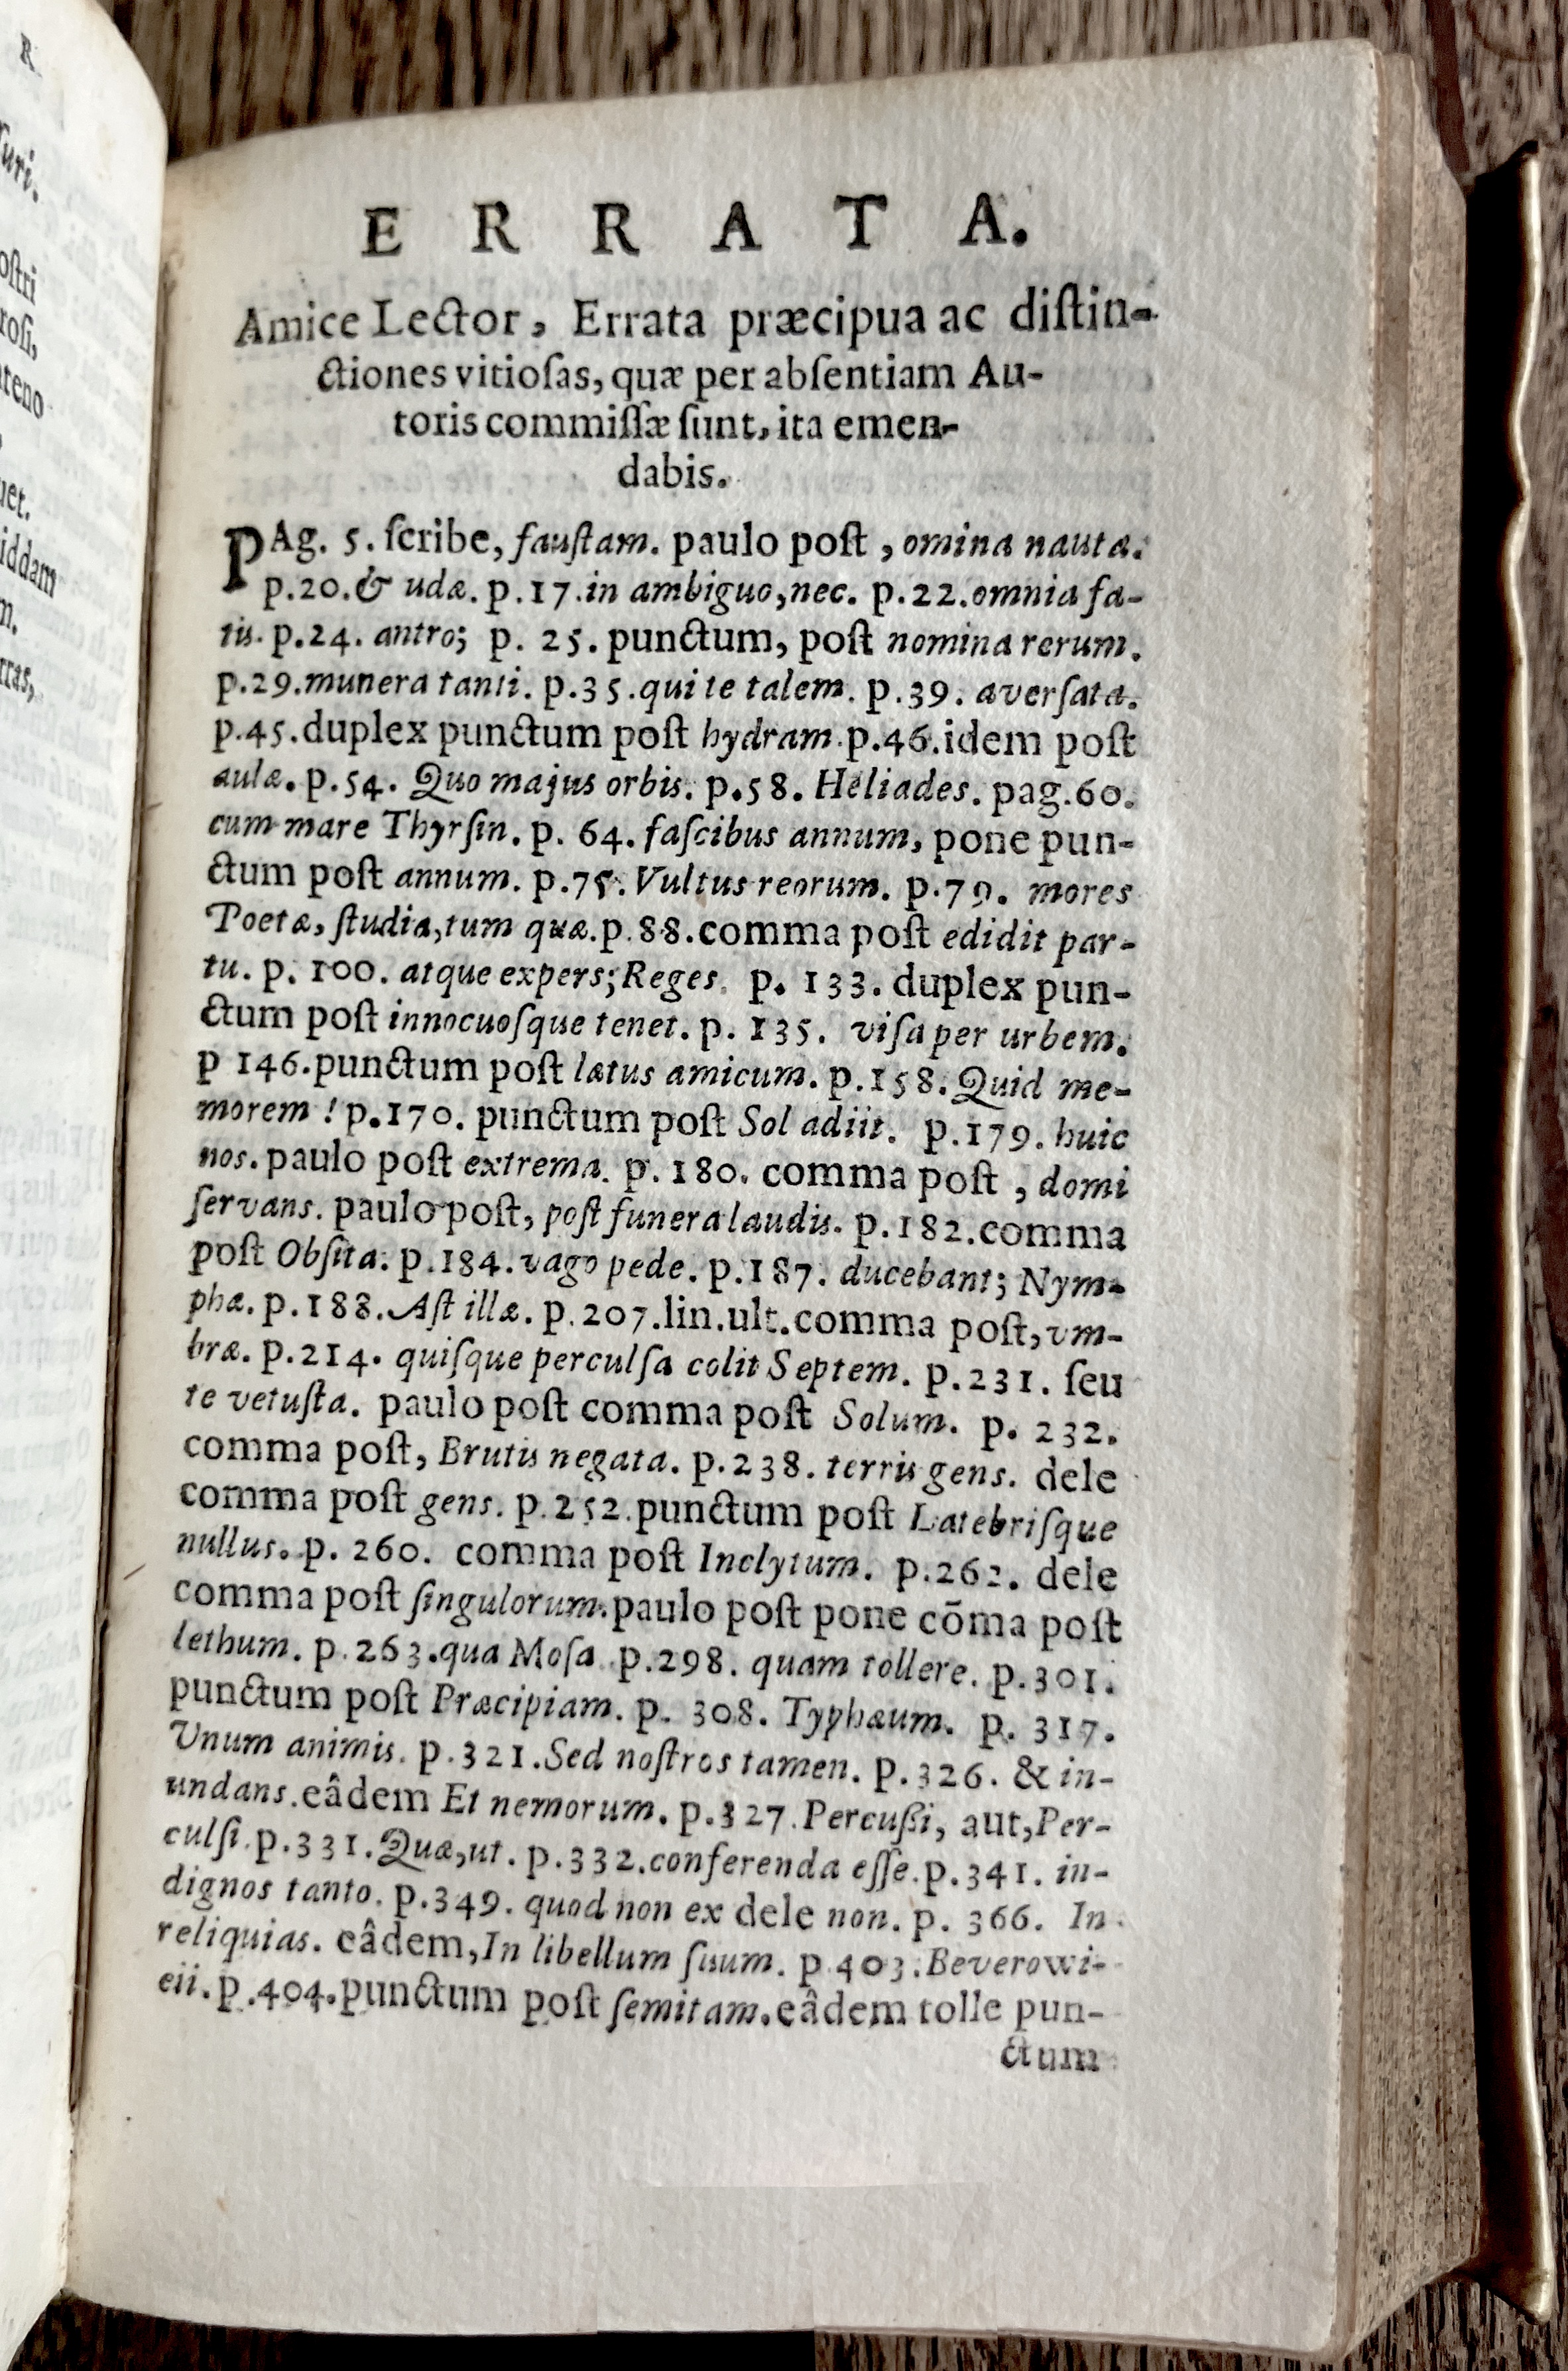 R
uri.
ostri
rosi,
ateno
uet.
iddam
m.
rras,
ERRATA.
Amice Lector, Errata præcipua ac distin-
ctiones vitiosas, quæ per absentiam Au-
toris commissæ sunt, ita emen-
dabis.
PAg. 5. scribe, faustam. paulo post, omina nautæ.
p.20. & udæ. p.17. in ambiguo, nec. p.22. omnia fa-
tis. p.24. antro; p. 25. punctum, post nomina rerum.
p.29. munera tanti. p.35. qui te talem. p.39. aversata.
p.45. duplex punctum post hydram. p.46. idem post
aulæ. p.54. Quo majus orbis. p.58. Heliades. pag.60.
cum mare Thyrsin. p. 64. fascibus annum, pone pun-
ctum post annum. p.75. Vultus reorum. p.79. mores
Poetæ, studia, tum quæ. p.88. comma post edidit par-
tu. p. 100. atque expers; Reges. p. 133. duplex pun-
ctum post innocuosque tenet. p. 135. visa per urbem.
p 146. punctum post lætus amicum. p.158. Quid me-
morem! p.170. punctum post Sol adiit. p.179. huic
nos. paulo post extrema. p. 180. comma post, domi
servans. paulo post, post funera laudis. p.182. comma
post Obsita. p.184. vago pede. p.187. ducebant; Nym-
phæ. p.188. Ast illæ. p.207. lin. ult. comma post, vm-
bræ. p.214. quisque perculsa colit Septem. p.231. seu
te vetusta. paulo post comma post Solum. p. 232.
comma post, Brutis negata. p.238. terris gens. dele
comma post gens. p.252. punctum post Latebrisque
nullus. p. 260. comma post Inclytum. p.262. dele
comma post singulorum. paulo post pone cōma post
lethum. p.263. qua Mosa. p.298. quam tollere. p.301.
punctum post Præcipiam. p. 308. Typhæum. p. 317.
Vnum animis. p.321. Sed nostros tamen. p.326. & in-
undans. eâdem Et nemorum. p.327. Percußi, aut, Per-
culsi. p.331. Quæ, ut. p.332. conferenda esse. p.341. in-
dignos tanto. p.349. quod non ex dele non. p. 366. In
reliquias. eâdem, In libellum suum. p.403. Beverowi-
cii. p.404. punctum post semitam. eâdem tolle pun-
ctum